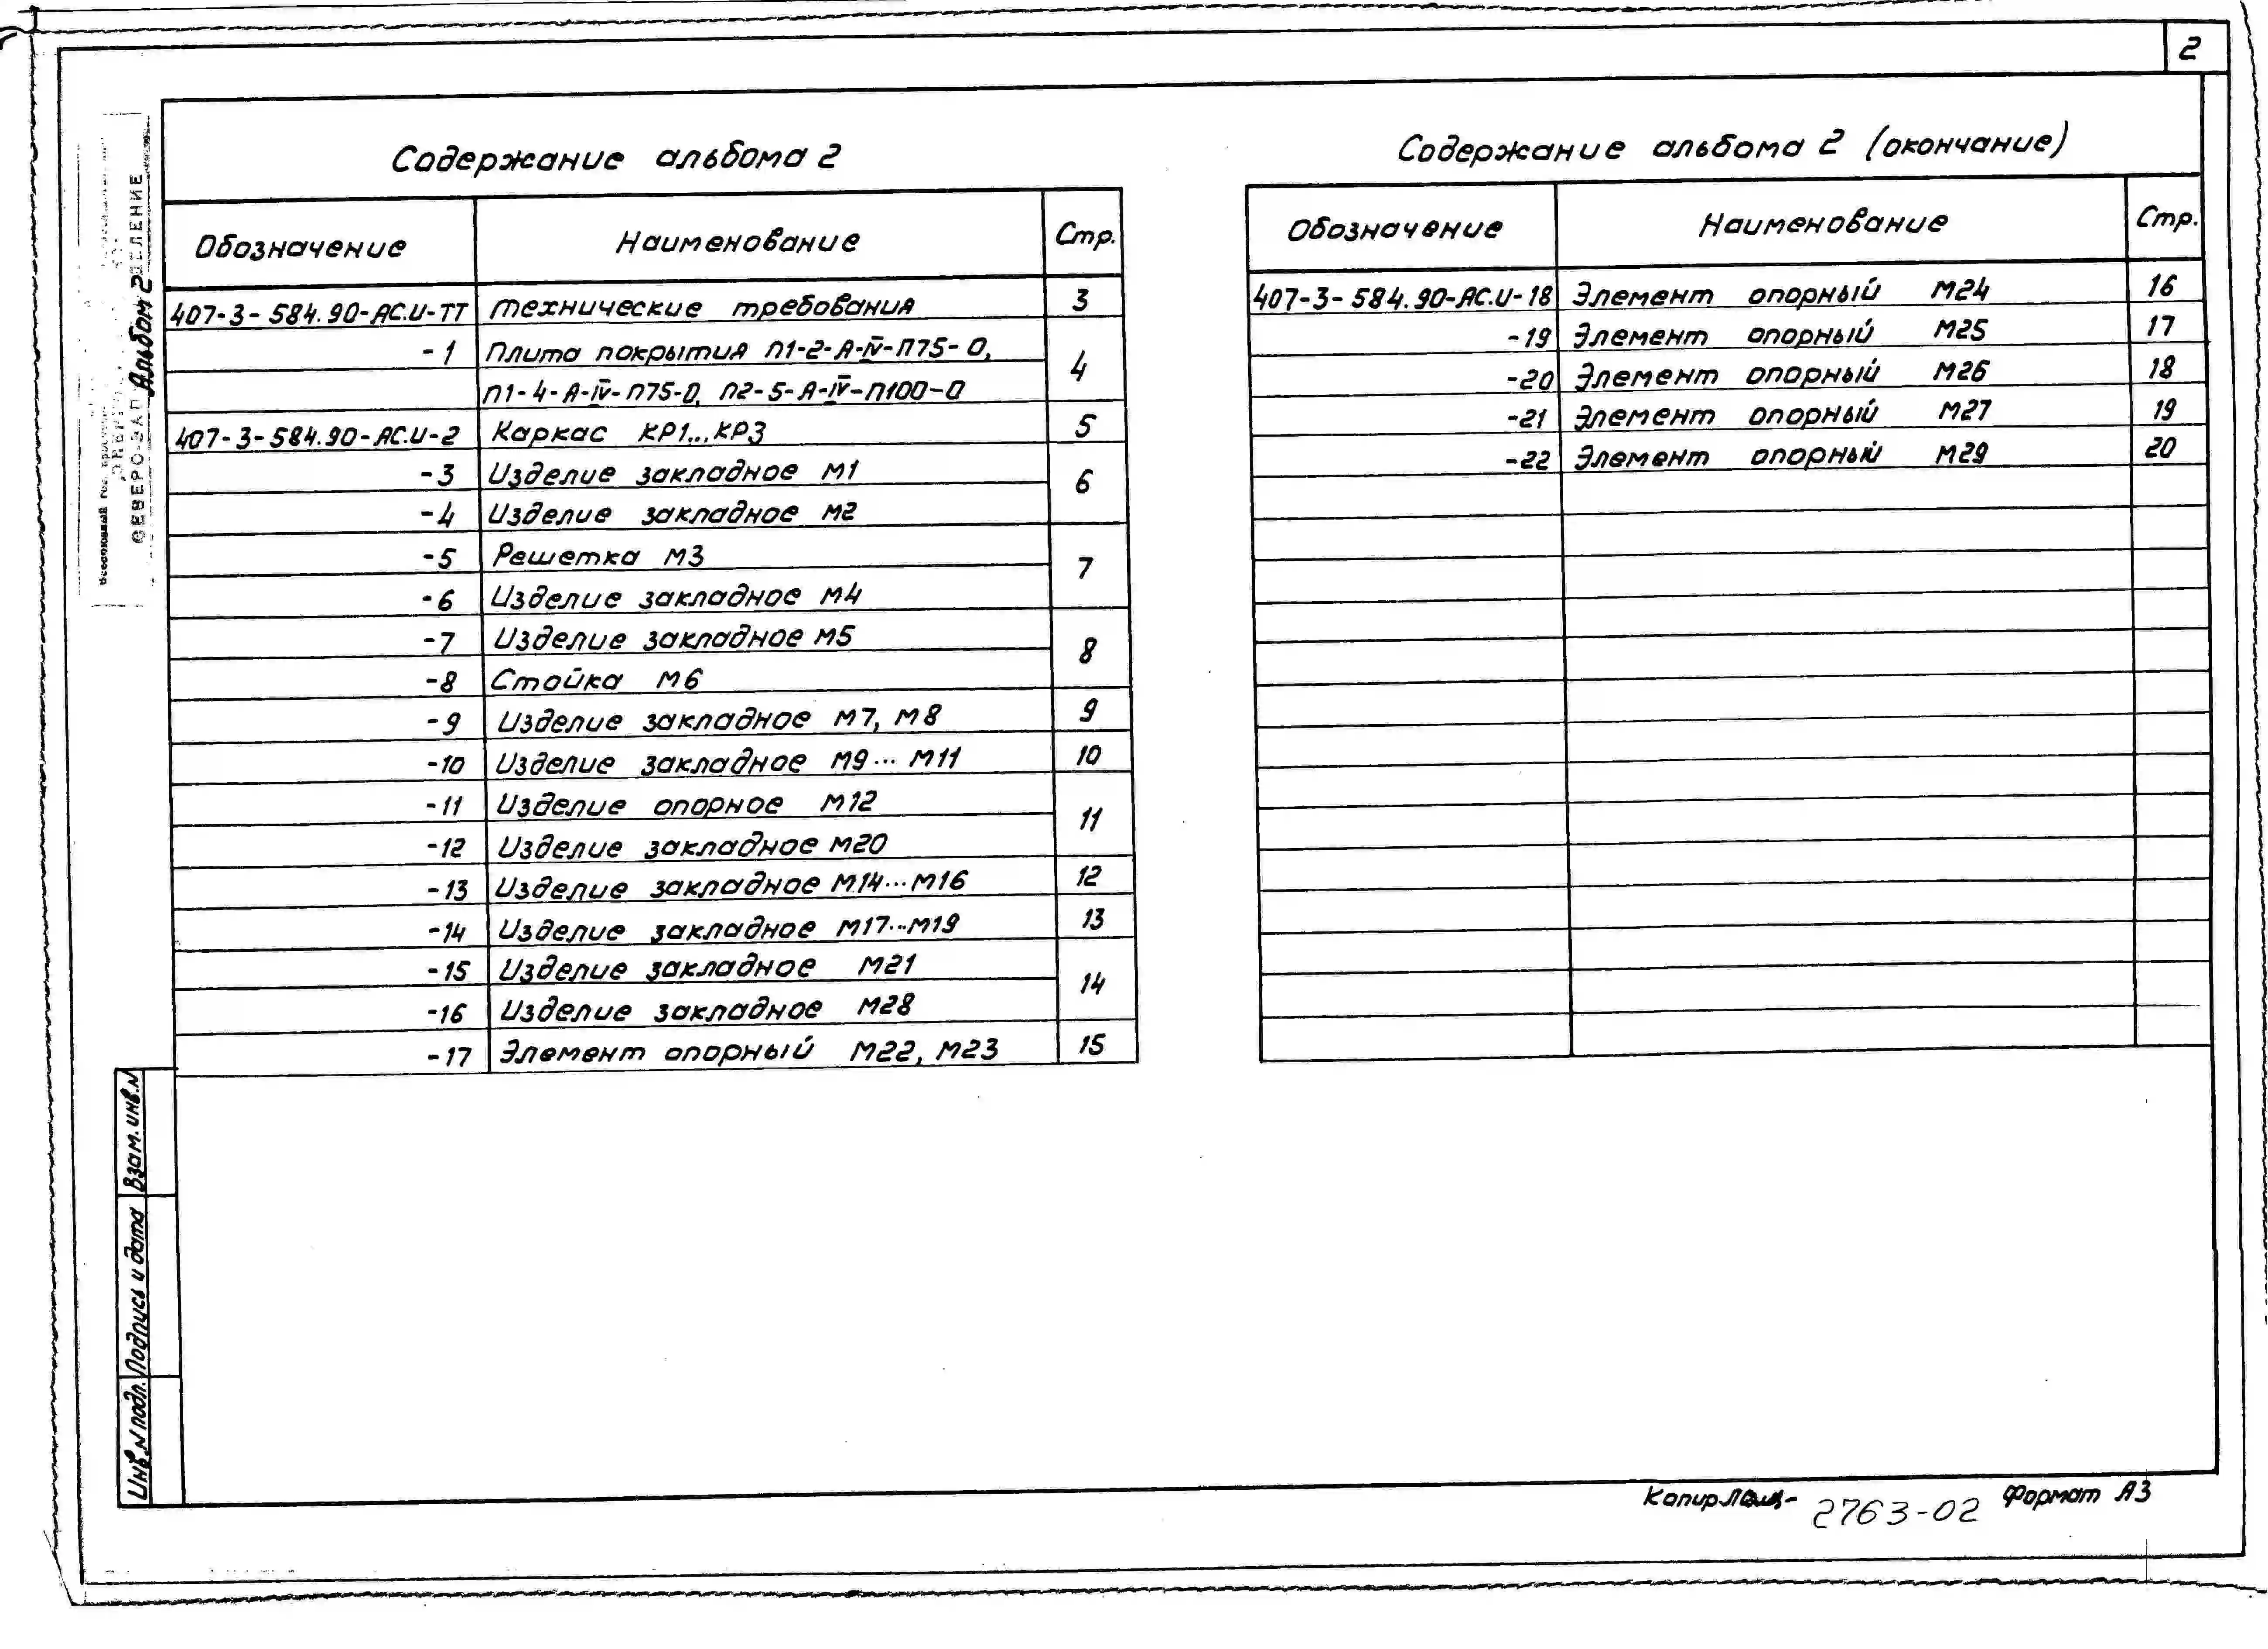 2
Содержание альбома 2
Обозначение Наименование Стр.
407-3-584.90-АС.И-ТТ Технические требования 3
-1 Плита покрытия П1-2-А-IV-П75-0, 4
П1-4-А-IV-П75-0, П2-5-А-IV-П100-0
407-3-584.90-АС.И-2 Каркас КР1...КР3 5
-3 Изделие закладное М1 6
-4 Изделие закладное М2
-5 Решетка М3 7
-6 Изделие закладное М4
-7 Изделие закладное М5 8
-8 Стойка М6
-9 Изделие закладное М7, М8 9
-10 Изделие закладное М9...М11 10
-11 Изделие опорное М12 11
-12 Изделие закладное М20
-13 Изделие закладное М14...М16 12
-14 Изделие закладное М17...М19 13
-15 Изделие закладное М21 14
-16 Изделие закладное М28
-17 Элемент опорный М22, М23 15
Содержание альбома 2 (окончание)
Обозначение Наименование Стр.
407-3-584.90-АС.И-18 Элемент опорный М24 16
-19 Элемент опорный М25 17
-20 Элемент опорный М26 18
-21 Элемент опорный М27 19
-22 Элемент опорный М29 20
Альбом 2
Всесоюзный гос.
Взам. инв. N
Подпись и дата
Инв. N подл.
Копир.
2763-02
Формат А3